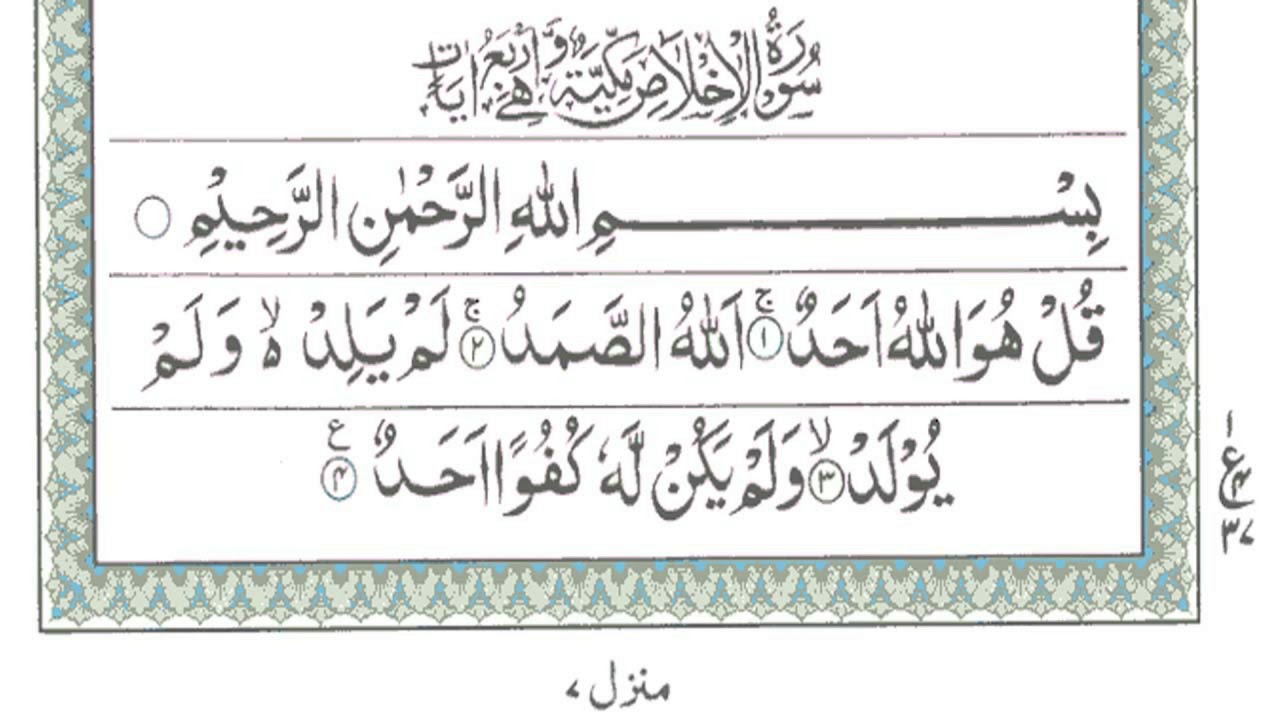 سُوْرَةُ الْاِخْلَاصِ مَكِّيَّةٌ وَّهِيَ اَرْبَعُ اٰيَاتٍ
بِسْمِ اللّٰهِ الرَّحْمٰنِ الرَّحِيْمِ ○
قُلْ هُوَ اللّٰهُ اَحَدٌ ۚ ﴿١﴾ اَللّٰهُ الصَّمَدُ ۚ ﴿٢﴾ لَمْ يَلِدْ ەۙ وَلَمْ
يُوْلَدْ ۙ ﴿٣﴾ وَلَمْ يَكُنْ لَّهٗ كُفُوًا اَحَدٌ ﴿۴﴾ ع
١
ع ۴
٣٧
منزل ٧